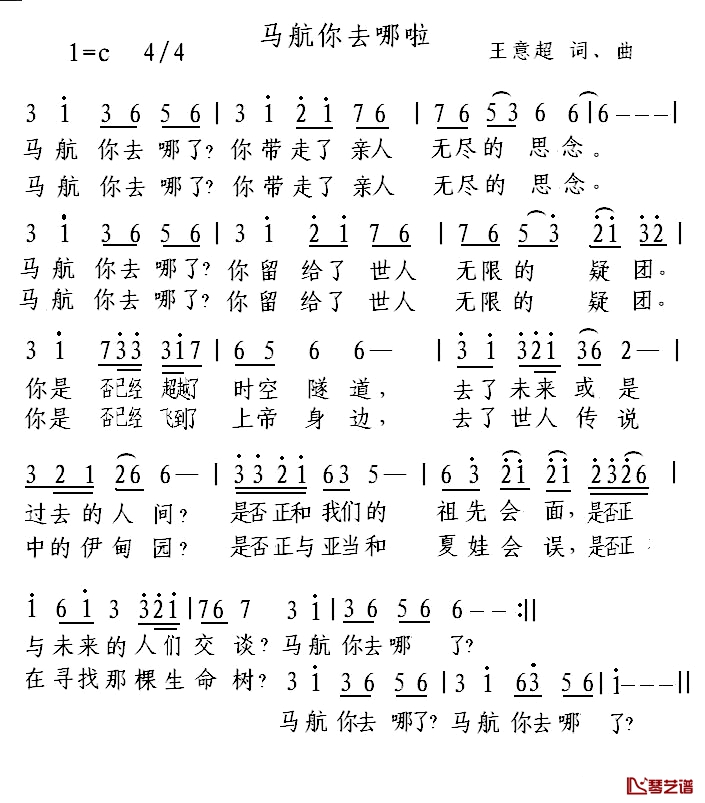 马航你去哪啦
1=c 4/4 王意超 词、曲
3 i 3 6 5 6 | 3 i 2 i 7 6 | 7 6 5 3 6 6 | 6 - - - |
马航你去哪了?你带走了亲人 无尽的思念。
马航你去哪了?你带走了亲人 无尽的思念。
3 i 3 6 5 6 | 3 i 2 i 7 6 | 7 6 5 3 2 i 3 2 |
马航你去哪了?你留给了世人 无限的 疑团。
马航你去哪了?你留给了世人 无限的 疑团。
3 i 7 3 3 3 i 7 | 6 5 6 6 — | 3 i 3 2 i 3 6 2 — |
你是否已经超越了 时空隧道, 去了未来或是
你是否已经飞到了 上帝身边, 去了世人传说
3 2 1 2 6 6 — | 3 3 2 i 6 3 5 — | 6 3 2 i 2 i 2 3 2 6 |
过去的人间? 是否正和我们的 祖先会面,是否正
中的伊甸园? 是否正与亚当和 夏娃会误,是否正
i 6 i 3 3 2 i | 7 6 7 3 i | 3 6 5 6 6 - - :||
与未来的人们交谈?马航你去哪 了?
在寻找那棵生命树? 3 i 3 6 5 6 | 3 i 6 3 5 6 | i - - - ||
马航你去哪了?马航你去哪 了?
琴艺谱